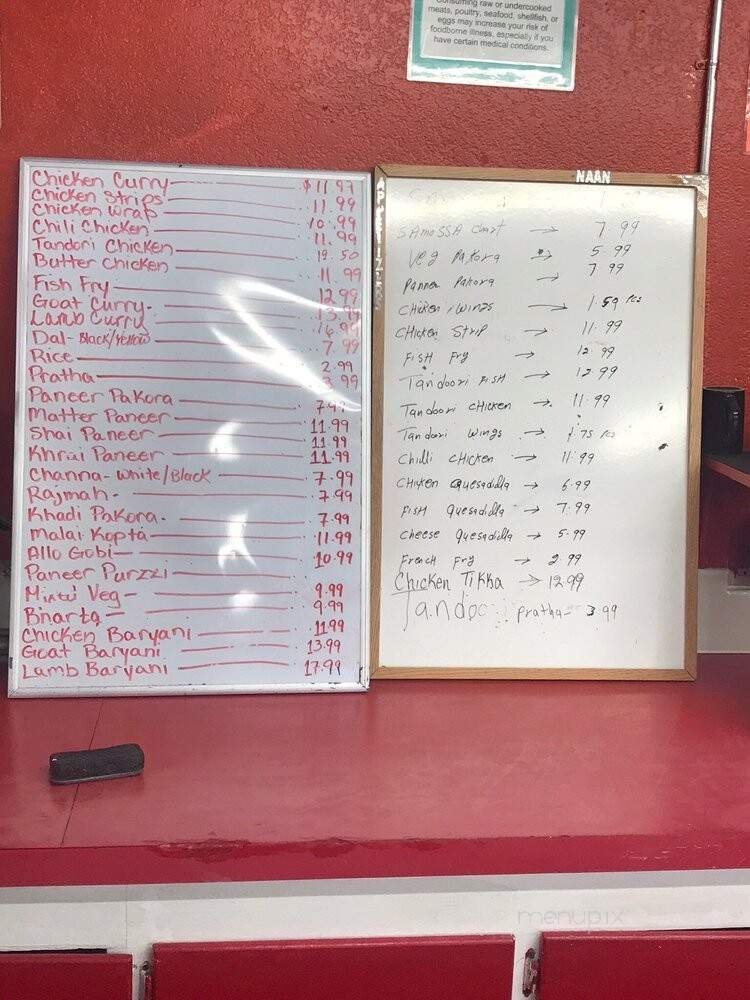 Consuming raw or undercooked
meats, poultry, seafood, shellfish, or
eggs may increase your risk of
foodborne illness, especially if you
have certain medical conditions.
Chicken Curry $11.97
Chicken Strips 11.99
Chicken Wrap 10.99
Chili Chicken 11.99
Tandori Chicken 12.50
Butter Chicken 11.99
Fish Fry 12.99
Goat Curry 13.99
Lamb Curry 16.99
Dal - Black/Yellow 7.99
Rice 2.99
Pratha 3.99
Paneer Pakora 7.99
Matter Paneer 11.99
Shai Paneer 11.99
Khrai Paneer 11.99
Channa - White/Black 7.99
Rajmah - 7.99
Khadi Pakora - 7.99
Malai Kopta 11.99
Allo Gobi 10.99
Paneer Purzzi
Mixed Veg - 9.99
Bharta 9.99
Chicken Baryani 11.99
Goat Baryani 13.99
Lamb Baryani 17.99
NAAN
SAMOSSA Chart → 7.99
Veg Pakora → 5.99
Panner Pakora → 7.99
CHicken wings → 1.59 Pcs
CHicken Strip → 11.99
FISH Fry → 12.99
Tandoori FISH → 12.99
Tandoori CHicken → 11.99
Tandoori wings → 1.75 Pcs
Chilli CHicken → 11.99
CHicken Quesadilla → 6.99
FISH Quesadilla → 7.99
Cheese Quesadilla → 5.99
French Fry → 2.99
Chicken Tikka → 12.99
Tandoo Pratha - 3.99
menupix